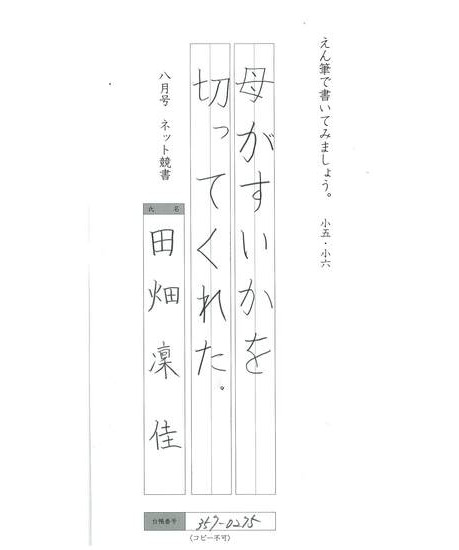 えん筆で書いてみましょう。 小五・小六
母がすいかを
切ってくれた。
八月号 ネット競書
氏名
田畑凜佳
台帳番号 357-0275
(コピー不可)